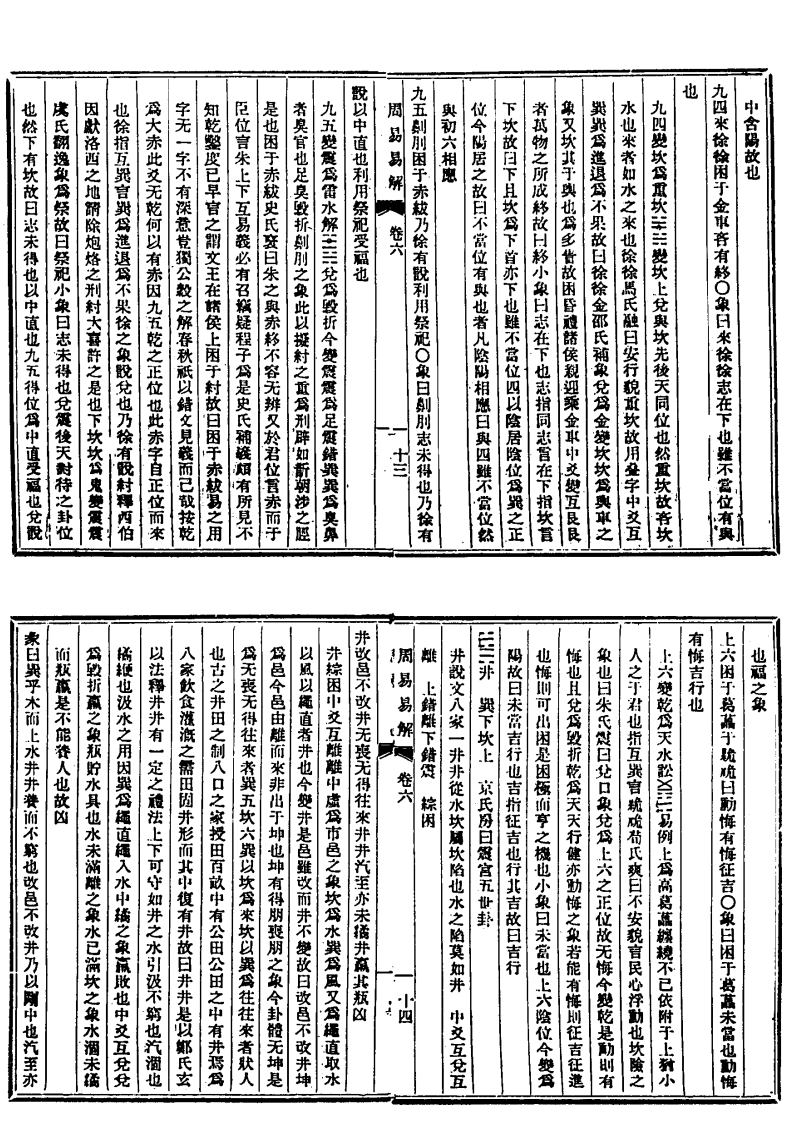 中含陽故也
九四來徐徐困于金車吝有終○象曰來徐徐志在下也雖不當位有與
也
九四變坎爲重坎☵☵變坎上兌與坎先後天同位也然重坎故吝坎
水也來者如水之來也徐徐馬氏融曰安行貌重坎故用疊字中爻互
巽巽爲進退爲不果故曰徐徐金邵氏補象兌爲金變坎坎爲輿車之
象又坎其于輿也爲多眚故困昏禮諸侯親迎乘金車中爻變互艮艮
者萬物之所成終故曰終小象曰志在下也志指同志言在下指坎言
下坎故曰下且坎爲下首亦下也雖不當位四以陰居陰位爲巽之正
位今陽居之故曰不當位有與也者凡陰陽相應曰與四雖不當位然
與初六相應
九五劓刖困于赤紱乃徐有說利用祭祀○象曰劓刖志未得也乃徐有
周易易解 卷六 十三
說以中直也利用祭祀受福也
九五變震爲雷水解☳☵兌爲毀折今變震震爲足震錯巽巽爲臭鼻
者臭官也足臭毀折劓刖之象此以擬紂之重爲刑辟如斮朝涉之脛
是也困于赤紱史氏褒曰朱之與赤終不容无辨又於君位言赤而于
臣位言朱上下互易義必有召竊疑程子爲是史氏補義頗有所見不
知乾鑿度已早言之謂文王在諸侯上困于紂故曰困于赤紱易之用
字无一字不有深意豈獨公穀之解春秋祇以錯文見義而已哉按乾
爲大赤此爻无乾何以有赤因九五乾之正位也此赤字自正位而來
也徐指互巽言巽爲進退爲不果徐之象說兌也乃徐有說紂釋西伯
因獻洛西之地請除炮烙之刑紂大喜許之是也下坎坎爲鬼變震震
虞氏翻逸象爲祭故曰祭祀小象曰志未得也兌震後天對待之卦位
也然下有坎故曰志未得也以中直也九五得位爲中直受福也兌說
也福之象
上六困于葛藟于臲卼曰動悔有悔征吉○象曰困于葛藟未當也動悔
有悔吉行也
上六變乾爲天水訟☰☵易例上爲高葛藟纏繞不已依附于上猶小
人之于君也指互巽言臲卼荀氏爽曰不安貌言民心浮動也坎險之
象也曰朱氏震曰兌口象兌爲上六之正位故无悔今變乾是動則有
悔也且兌爲毀折乾爲天天行健亦動悔之象若能有悔則征吉征進
也悔則可出困是困極而亨之機也小象曰未當也上六陰位今變爲
陽故曰未當吉行也吉指征吉也行其吉故曰吉行
☵☴井 巽下坎上 京氏房曰震宮五世卦
井說文八家一井井從水坎屬坎陷也水之陷莫如井 中爻互兌互
離 上錯離下錯震 綜困
周易易解 卷六 十四
井改邑不改井无喪无得往來井井汔至亦未繘井羸其瓶凶
井綜困中爻互離離中虛爲市邑之象坎爲水巽爲風又爲繩直取水
以風以繩直者井也今變井是邑雖改而井不變故曰改邑不改井坤
爲邑今邑由離而來非出于坤也坤有得朋喪朋之象今卦體无坤是
爲无喪无得往來者巽五坎六巽以坎爲來坎以巽爲往往來者狀人
也古之井田之制八口之家授田百畝中有公田公田之中有井焉爲
八家飲食灌漑之需田固井形而其中復有井故曰井井是以鄭氏玄
以法釋井井有一定之禮法上下可守如井之水引汲不窮也汔涸也
繘綆也汲水之用因巽爲繩直繩入水中繘之象羸敗也中爻互兌兌
爲毀折羸之象瓶貯水具也水未滿離之象水已滿坎之象水涸未繘
而瓶羸是不能養人也故凶
彖曰巽乎木而上水井井養而不窮也改邑不改井乃以剛中也汔至亦